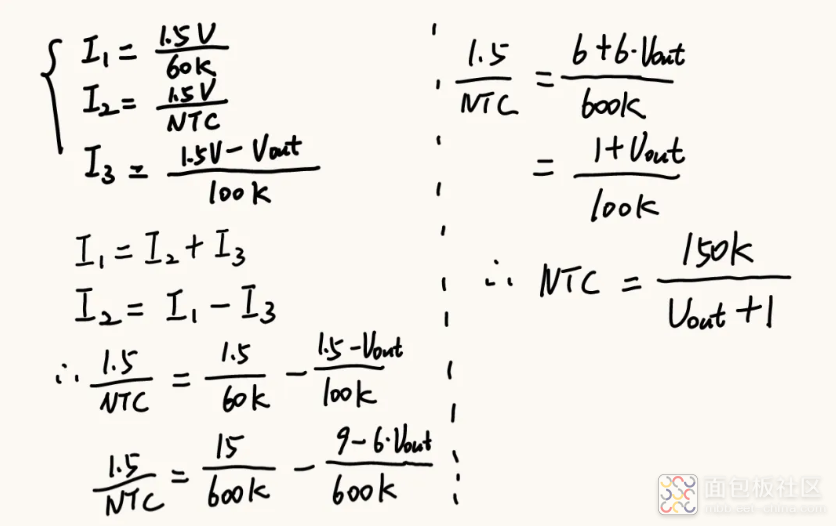 I₁ = 1.5V / 60K
I₂ = 1.5V / NTC
I₃ = 1.5V - Vout / 100K
I₁ = I₂ + I₃
I₂ = I₁ - I₃
∴ 1.5 / NTC = 1.5 / 60K - 1.5 - Vout / 100K
1.5 / NTC = 15 / 600K - 9 - 6·Vout / 600K
1.5 / NTC = 6 + 6·Vout / 600K
= 1 + Vout / 100K
∴ NTC = 150K / Vout + 1
面包板社区
mbb.eet-china.com